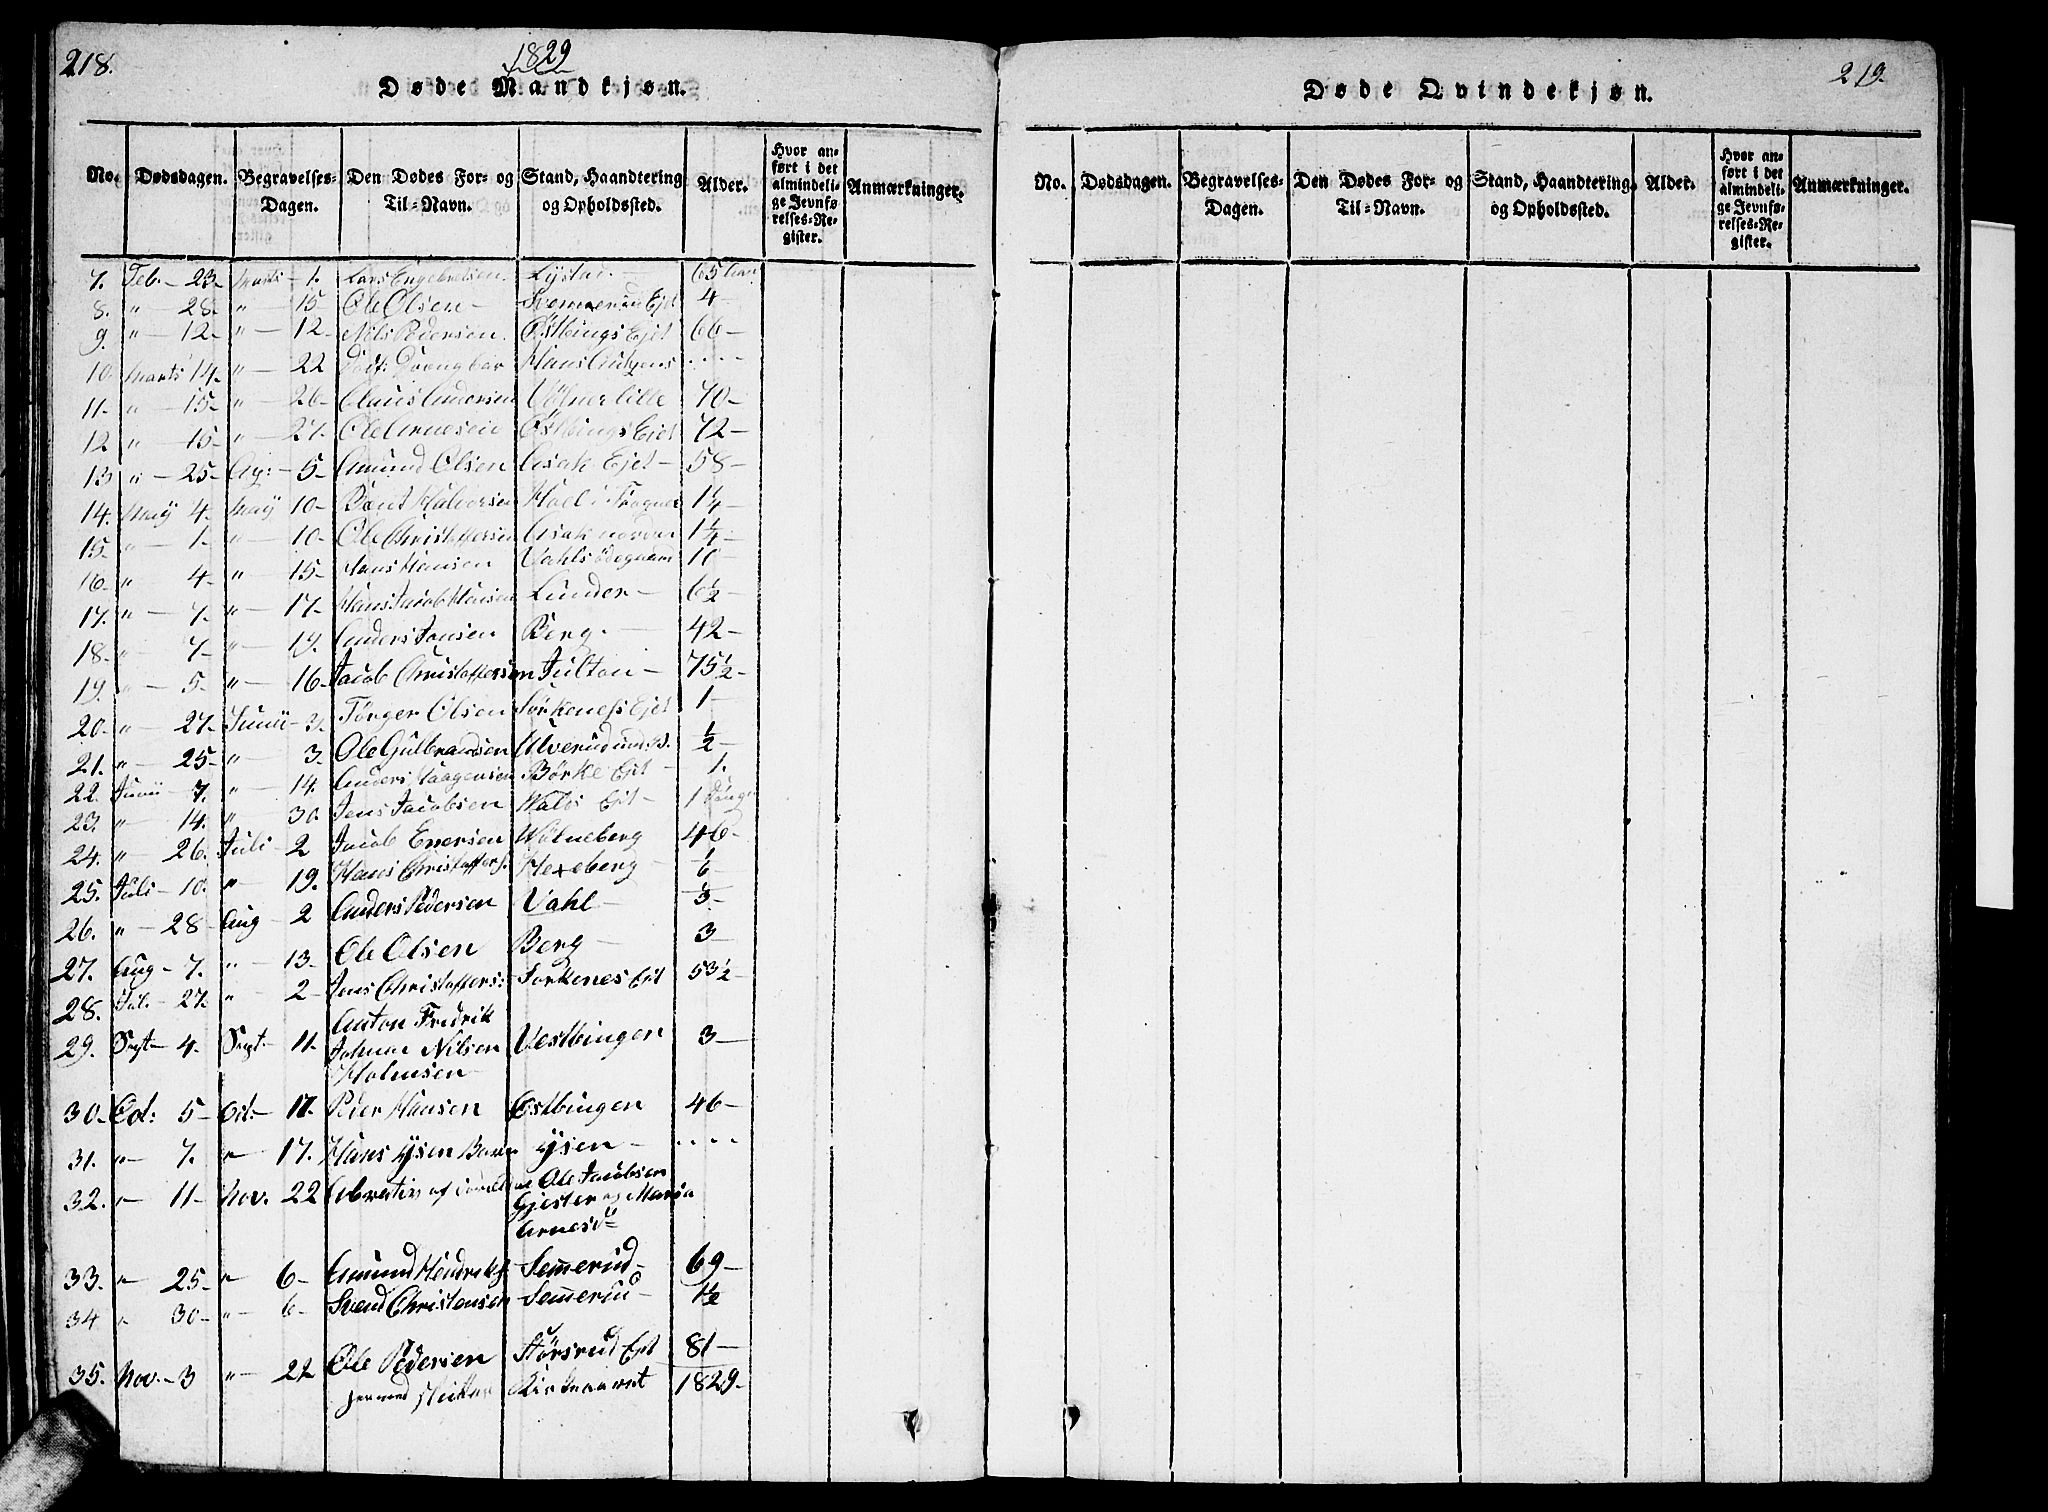 218.
1829
Døde Mandkjøn.
No. Dødsdagen. Begravelses-Dagen. Den Dødes For- og Til-Navn. Stand, Haandtering og Opholdssted. Alder. Hvor anført i det almindelige Jevnførelses-Register. Anmærkninger.
7. Feb. - 23. Marts - 1. Lars Engebretsen. Lystad. - 65
8. " - 28. " - 15 Ole Olsen - Svemmerud Ejet 4 -
9. " - 12 - " - 12 - Nils Pedersen. Østbings Ejet 66 -
10. Marts 14. " - 22
11. " - 15 - " - 26 - Claus Andersen 70 -
12 " - 15 - " - 27. Ole Arnesen Østbings Ejet 72 -
13 " - 25 - Ap: - 5 - Amund Olsen Asak Ejet - 58 -
14. Maÿ 4. Maÿ 10 - Halversen Hoel i Frogner 1¼ -
15. " - 1. " - 10 - Ole Christoffersen Asak nordre 1½ -
16. " 4. " - 15 - Hans Hansen
17. " - 7. " - 17. Hans Jacob Hansen Lunder - 6½ -
18. " - 7 - " - 19. Anders Jansen Berg. - 42 -
19. " - 5 - " - 16 - Jacob Christoffersen Julton - 75½ -
20. " - 27. Junii - 3. Törger Olsen Sørkeness Ejet 1 -
21. " - 25 - " - 3. Ole Gulbrandsen Ulverud ½ -
22. Junii - 7. " - 14. Anders Haagensen Børke Ejet - 1.
23. " - 14. " 30. Jens Jacobsen Wals Ejet - 1
24. " - 26. Juli - 2 Jacob Enersen Wölneberg 46 -
25. Juli - 10. " - 19. Hans Christoffers. Hexeberg - ⅙ -
26. " - 28 Aug - 2 Anders Pedersen Vahl - ⅓ -
27. Aug - 7. " - 13. Ole Olsen Berg - 3
28. Jul. - 27. " - 2 - Jens Christoffers: Sorkenes Ejet 53½ -
29. Sept - 4. Sept. - 11. Anton Fredrik
Johan Nilsen Vestbingen 3 -
Holmsen -
30. Oct: 5 - Oct - 17. Peder Hansen Østbingen 46 -
31. " - 7. " - 17. Hans Ysen Barn Ysen - . . . .
32. " - 11 - Nov. 22 Ole Jacobsen
Gjester og Maria
Arnesd.
33. " - 25 - " - 6 - Amund Hendriks. Semerud - 69 -
34 " 30 - " - 6 - Svend Christensen Semerud - 1½
35. Nov. - 3 " - 22 Ole Pedersen Störsrud Ejet 81 -
Kirkeaaret 1829.
219.
Døde Qvindekjøn.
No. Dødsdagen. Begravelses-Dagen. Den Dødes For- og Til-Navn. Stand, Haandtering og Opholdssted. Alder. Hvor anført i det almindelige Jevnførelses-Register. Anmærkninger.